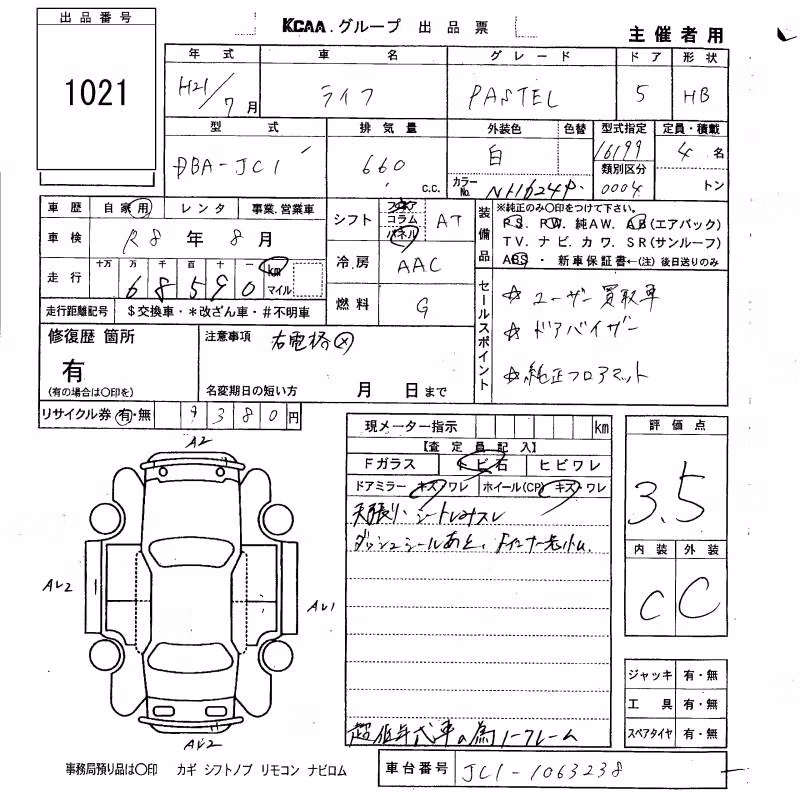 出品番号
1021
KCAA.グループ 出品票
主催者用
年式 車名 グレード ドア 形状
H21/7月 ライフ PASTEL 5 HB
型式 排気量 外装色 色替 型式指定 定員・積載
DBA-JC1 660 C.C. 白 16199 4名
カラーNo. NH624P 類別区分 0004 トン
車歴 自家用 レンタ 事業.営業車
車検 R8年8月
走行 十万 万 千 百 十 一 68590 km マイル
走行距離記号 $交換車・*改ざん車・#不明車
シフト フロア コラム パネル AT
冷房 AAC
燃料 G
装備品
※純正のみ〇印をつけて下さい。
P.S. P.W. 純AW. A.B(エアバッグ)
T V. ナビ. カワ. S R(サンルーフ)
ABS ・ 新車保証書←(注) 後日送りのみ
セールスポイント
☆ユーザー買取車
☆ドアバイザー
☆純正フロアマット
修復歴 箇所
有
(有の場合は〇印を)
注意事項
名変期日の短い方 月 日まで
リサイクル券 有・無 9380円
現メーター指示 km
【査定員記入】
Fガラス トビ石 ヒビワレ
ドアミラー キズ/ワレ ホイール(CP) キズ/ワレ
天張り、シートしみスレ
評価点
3.5
内装 外装
C C
ジャッキ 有・無
工具 有・無
スペアタイヤ 有・無
A2
Aレ2
Aレ1
Aレ2
超低年式車の為ノークレーム
事務局預り品は〇印 カギ シフトノブ リモコン ナビロム
車台番号 JC1-1063238